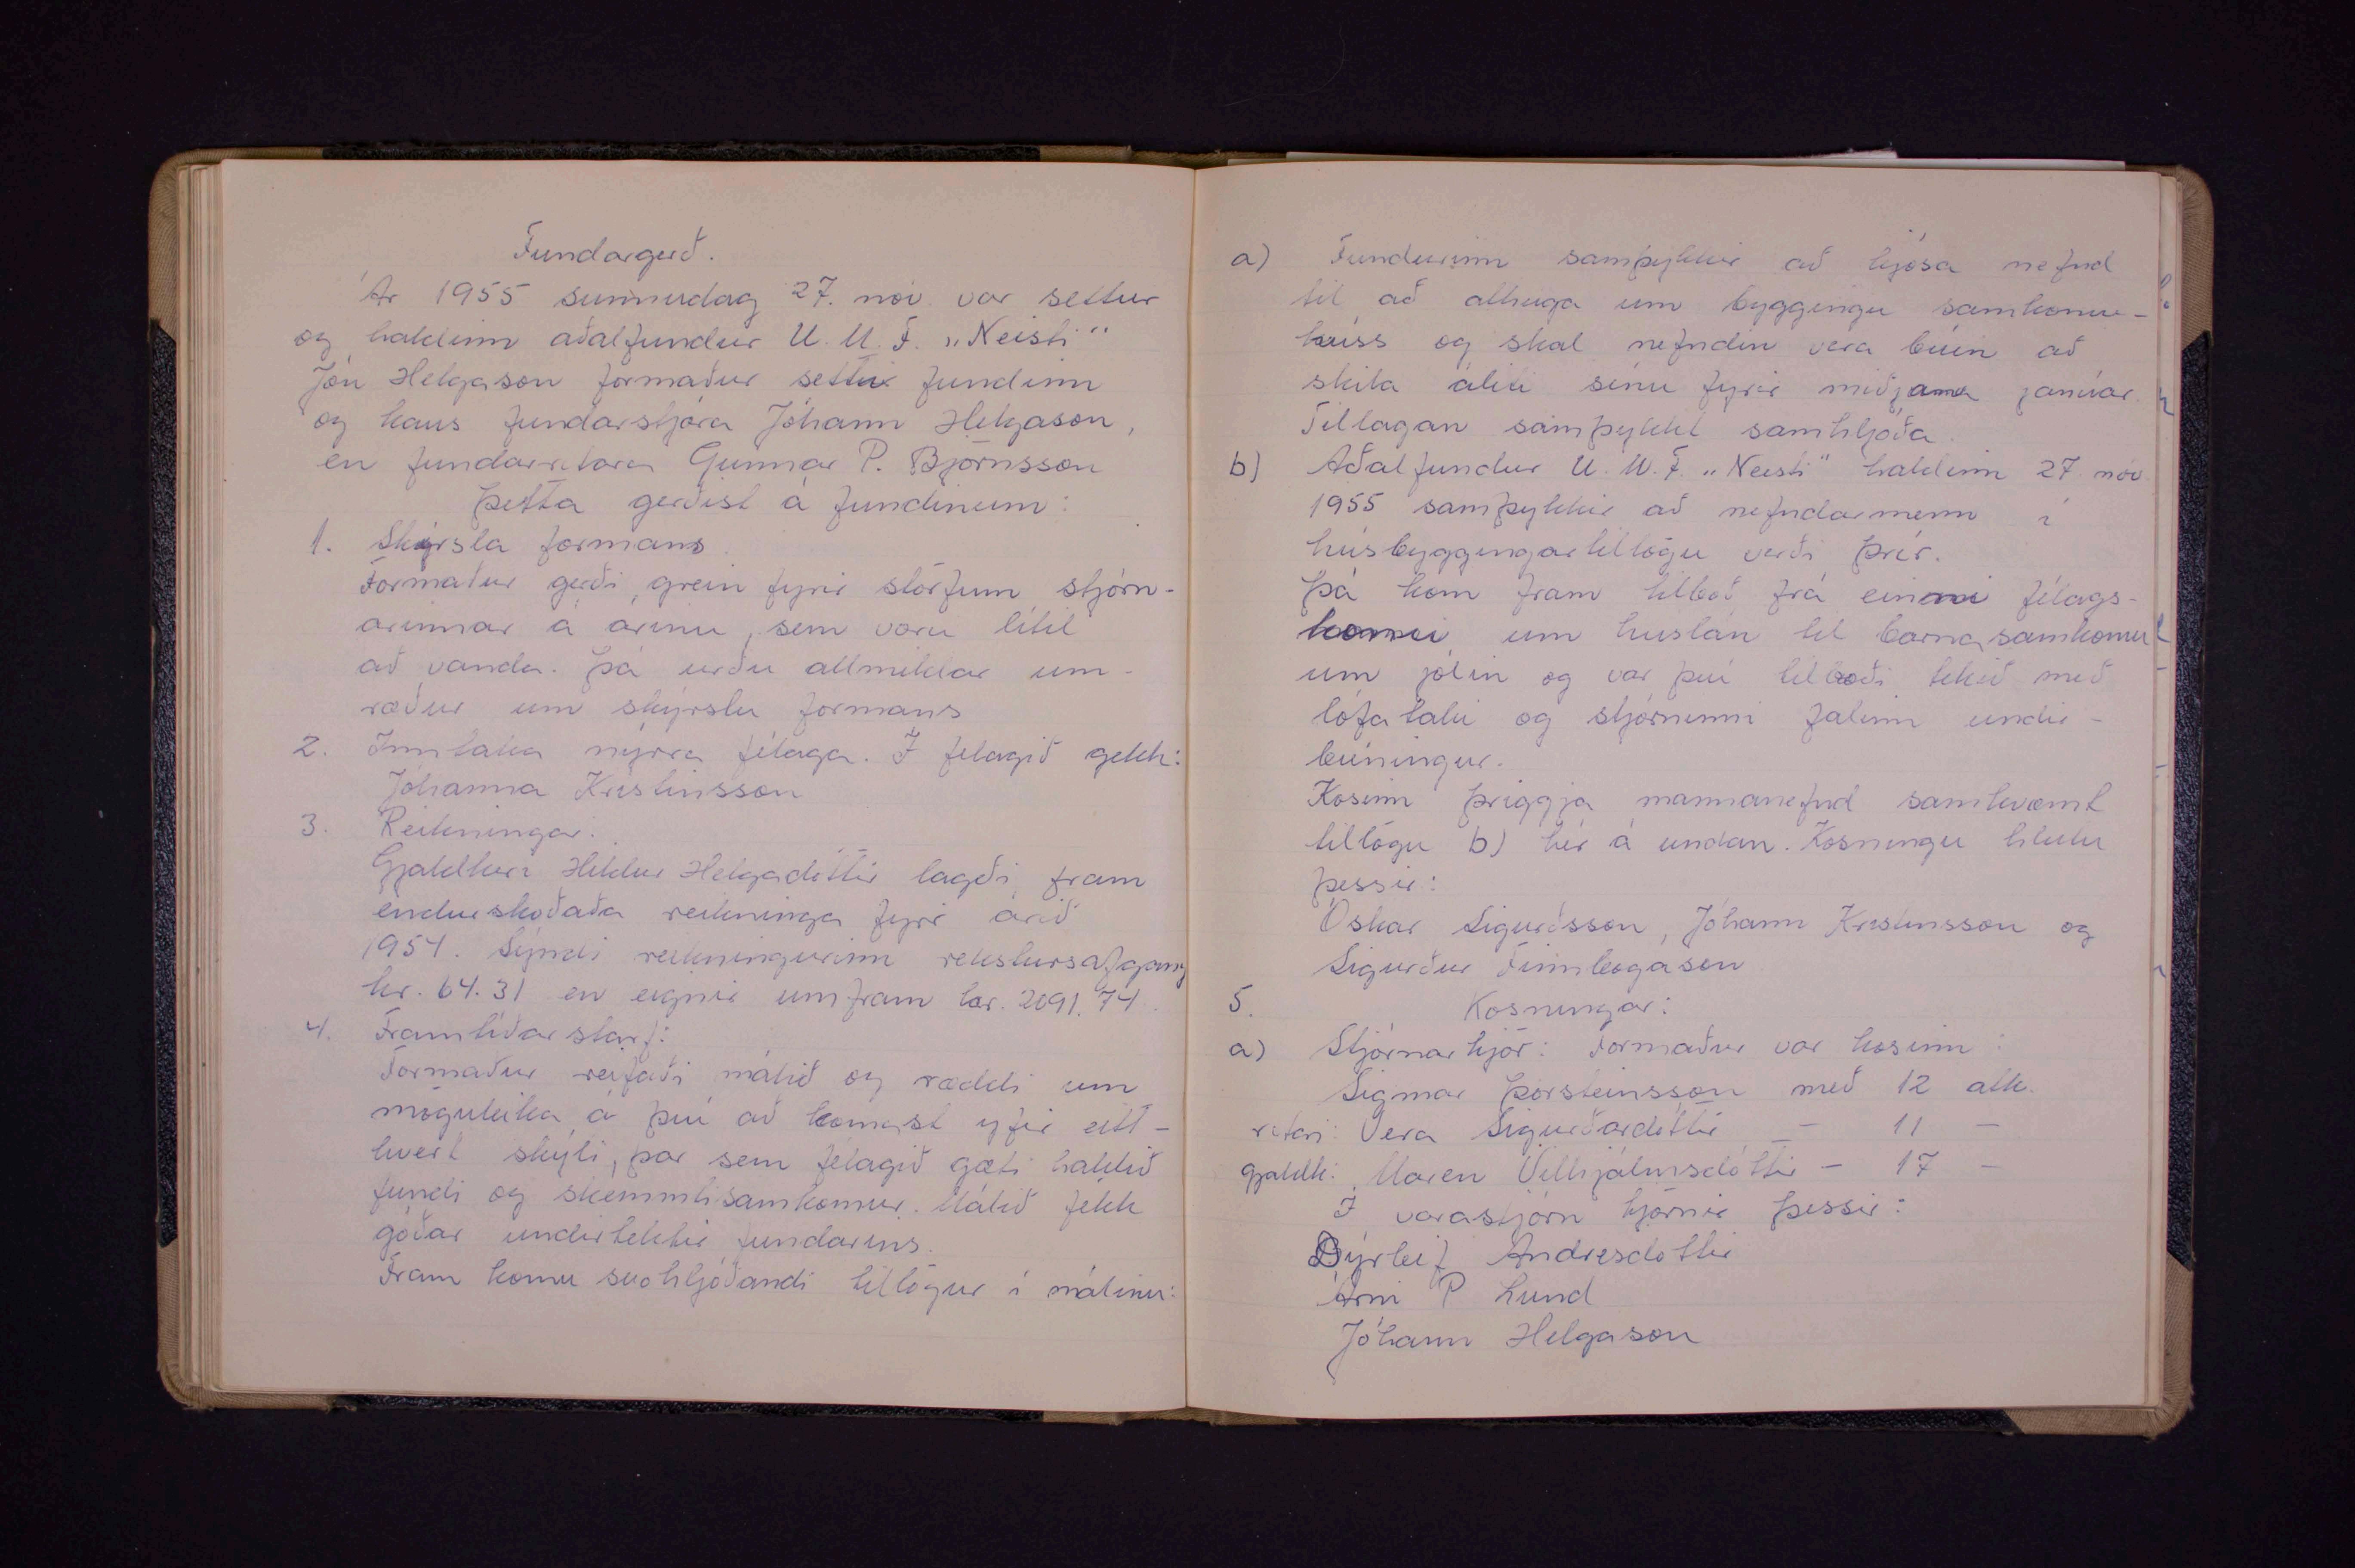 Fundargerð.
Ár 1955 sunnudag 27. nóv. var settur
og haldinn aðalfundur U. M. F. „Neisti"
Jón Helgason formaður setti fundinn
og kaus fundarstjóra Jóhann Helgason,
en fundarritara Gunnar P. Björnsson
Þetta gerðist á fundinum:
1. Skýrsla formans.
Formaður gerði grein fyrir störfum stjórn-
arinnar á árinu, sem voru lítil
að vanda. Þá urðu allmiklar um-
ræður um skýrslu formans
2. Inntaka nýrra félaga. Í félagið gekk:
Jóhanna Kristinsson
3. Reikningar.
Gjaldkeri Hildur Helgadóttir lagði fram
endurskoðaða reikninga fyrir árið
1954. Sýndi reikningurinn rekstursafgang
kr. 64.31 en eignir umfram kr. 2091.74.
4. Framtíðarstarf:
Formaður reifaði málið og ræddi um
möguleika á því að komast yfir eitt-
hvert skýli, þar sem félagið gæti haldið
fundi og skemmtisamkomur. Málið fékk
góðar undirtektir fundarins.
Fram komu svohljóðandi tillögur í málinu:
a) Fundurinn samþykkir að kjósa nefnd
til að athuga um byggingu samkomu-
húss og skal nefndin vera búin að
skila áliti sínu fyrir miðjann janúar.
Tillagan samþykkt samhljóða.
b) Aðalfundur U. M. F. „Neisti" haldinn 27. nóv.
1955 samþykkir að nefndarmenn í
húsbyggingartillögu verði þrír.
Þá kom fram tilboð frá einni félags-
konu um húslán til barnasamkomu
um jólin og var því tilboði tekið með
lófataki og stjórninni falinn undir-
búningur.
Kosinn þriggja mannanefnd samkvæmt
tillögu b) hér á undan. Kosningu hlutu
þessir:
Óskar Sigurðsson, Jóhann Kristinsson og
Sigurður Finnbogason
5. Kosningar:
a) Stjórnarkjör: Formaður var kosinn:
Sigmar Þorsteinsson með 12 atk.
ritari: Vera Sigurðardóttir — 11 —
gjaldk: Maren Vilhjálmsdóttir — 17 —
Í varastjórn kjörnir þessir:
Dýrleif Andresdóttir
Árni P Lund
Jóhann Helgason